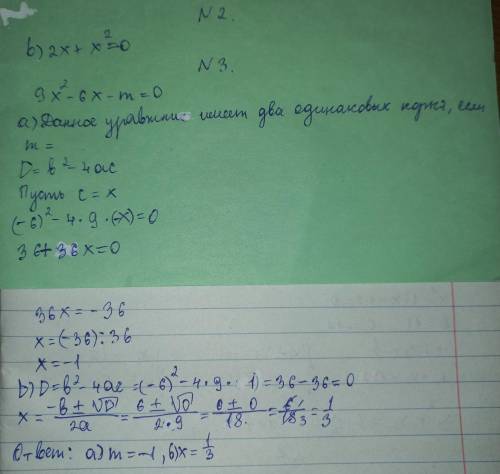 N 2.
b) 2x + x² = 0
N 3.
9x² - 6x - m = 0
a) Данное уравнение имеет два одинаковых корня, если
m =
D = b² - 4ac
Пусть c = x
(-6)² - 4 · 9 · (-x) = 0
36 + 36x = 0
36x = -36
x = (-36) : 36
x = -1
b) D = b² - 4ac = (-6)² - 4 · 9 · 1) = 36 - 36 = 0
x = (-b ± √D)/2a = (6 ± √0)/(2 · 9) = (6 ± 0)/18 = 6/18 = 1/3
Ответ: a) m = -1, б) x = 1/3